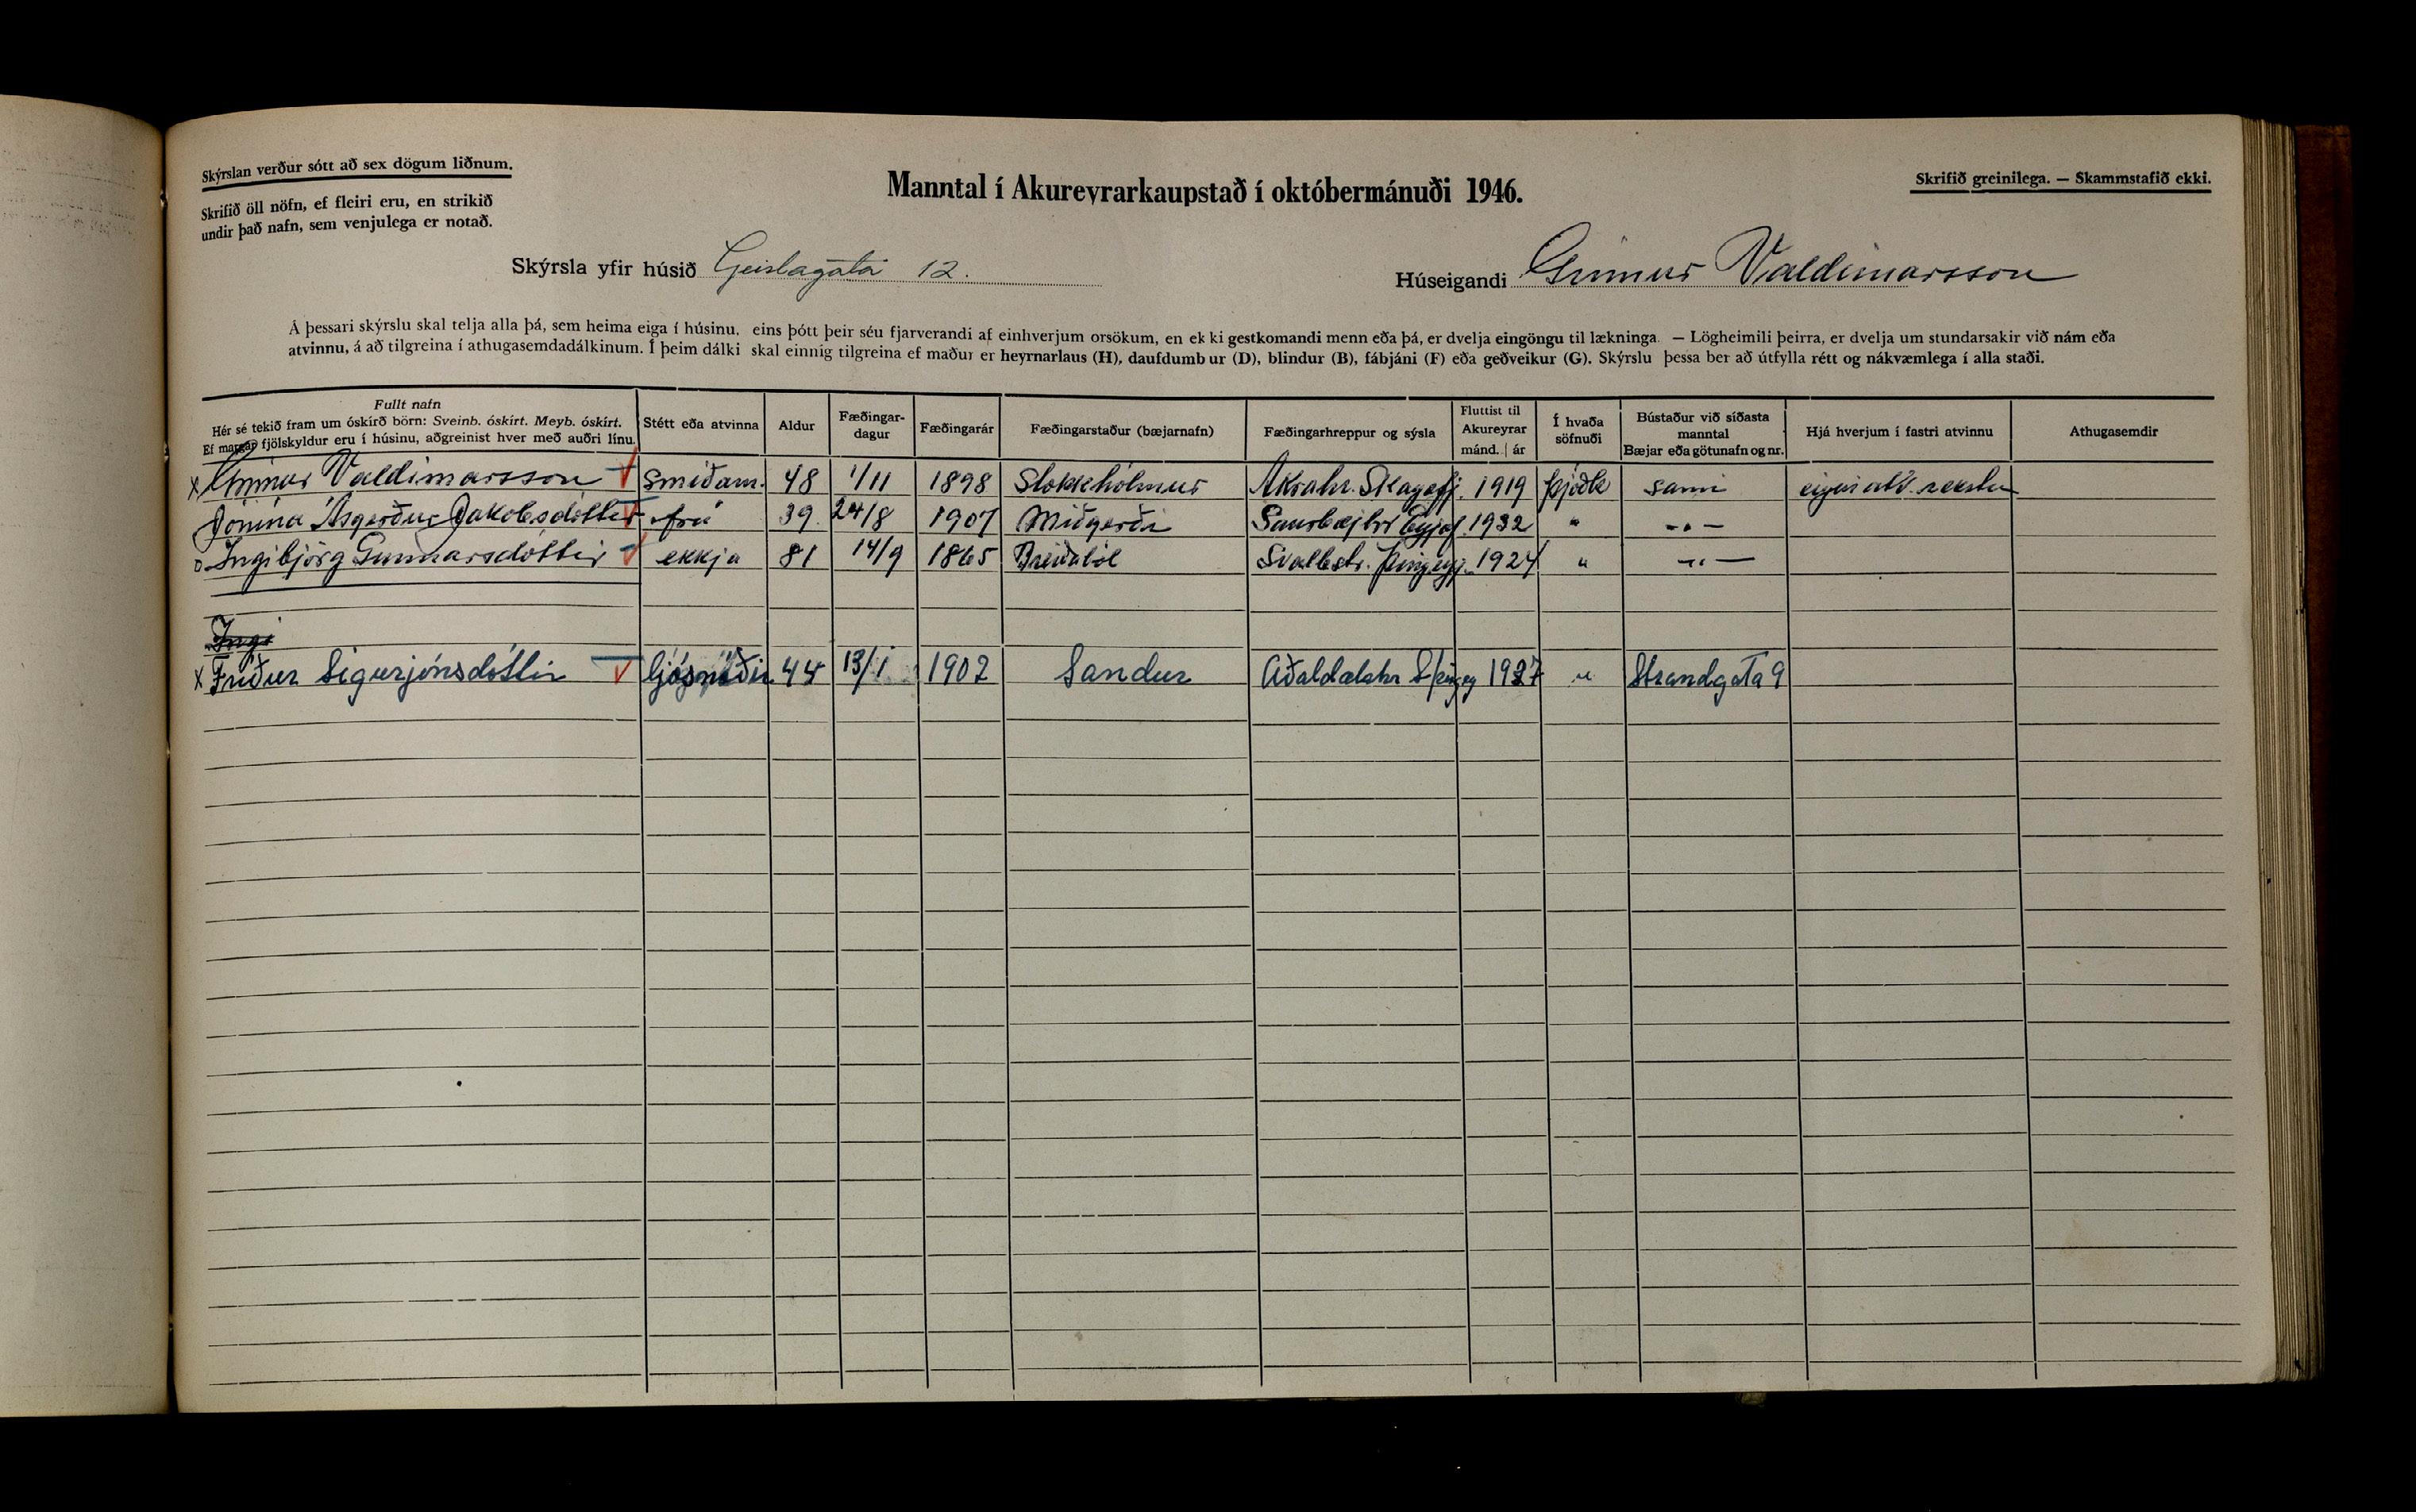 Skýrslan verður sótt að sex dögum liðnum.
Skrifið öll nöfn, ef fleiri eru, en strikið
undir það nafn, sem venjulega er notað.
Manntal í Akureyrarkaupstað í októbermánuði 1946.
Skrifið greinilega. — Skammstafið ekki.
Skýrsla yfir húsið Geislagata 12.
Húseigandi Grímur Valdimarsson
Á þessari skýrslu skal telja alla þá, sem heima eiga í húsinu, eins þótt þeir séu fjarverandi af einhverjum orsökum, en ekki gestkomandi menn eða þá, er dvelja eingöngu til lækninga. — Lögheimili þeirra, er dvelja um stundarsakir við nám eða
atvinnu, á að tilgreina í athugasemdadálkinum. Í þeim dálki skal einnig tilgreina ef maður er heyrnarlaus (H), daufdumbur (D), blindur (B), fábjáni (F) eða geðveikur (G). Skýrslu þessa ber að útfylla rétt og nákvæmlega í alla staði.
Fullt nafn
Hér sé tekið fram um óskírð börn: Sveinb. óskírt. Meyb. óskírt.
Ef margar fjölskyldur eru í húsinu, aðgreinist hver með auðri línu.
Stétt eða atvinna
Aldur
Fæðingar-
dagur
Fæðingarár
Fæðingarstaður (bæjarnafn)
Fæðingarhreppur og sýsla
Fluttist til
Akureyrar
mánd. | ár
Í hvaða
söfnuði
Bústaður við síðasta
manntal
Bæjar eða götunafn og nr.
Hjá hverjum í fastri atvinnu
Athugasemdir
x Grímur Valdimarsson smíðam. 48 1/11 1898 Stokkhólmur Akrahr. Skagafj. 1919 þjóðk sami eigin atv. rekstur
Jónína Ásgerður Jakobsdóttir frú 39 24/8 1907 Miðgerði Saurbæjhr Eyjaf. 1932 " -"-
o Ingibjörg Gunnarsdóttir ekkja 81 14/9 1865 Svalbstr. Þingey. 1924 " -"-
Ingi
x Fríður Sigurjónsdóttir ljósmóðir 44 13/1 1902 Sandur Aðaldælahr S/þingey 1937 " Strandgata 9